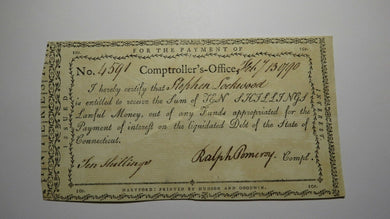 FOR THE PAYMENT OF
No. 4591 Comptroller's-Office, Feby 13 1790
I hereby certify that Stephen Lockwood
is entitled to receive the Sum of TEN SHILLINGS
Lawful Money, out of any Funds appropriated for the
Payment of interest on the liquidated Debt of the State of
Connecticut.
Ten Shillings Ralph Pomeroy Compt.
HARTFORD: PRINTED BY HUDSON AND GOODWIN.
ISSUED
INTEREST